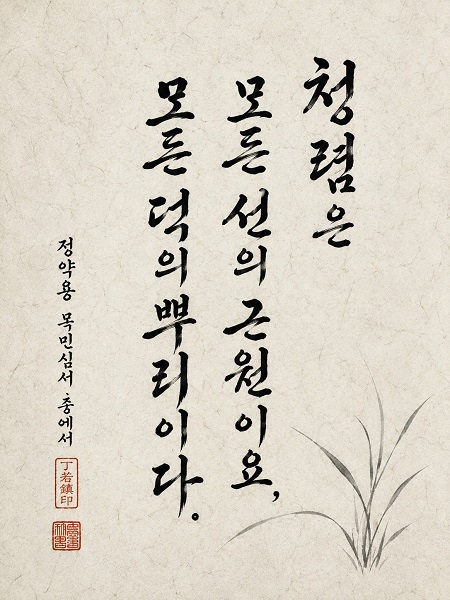 청렴은
모든 선의 근원이요,
모든 덕의 뿌리이다。
정약용 목민심서 총에서
丁若鎮印